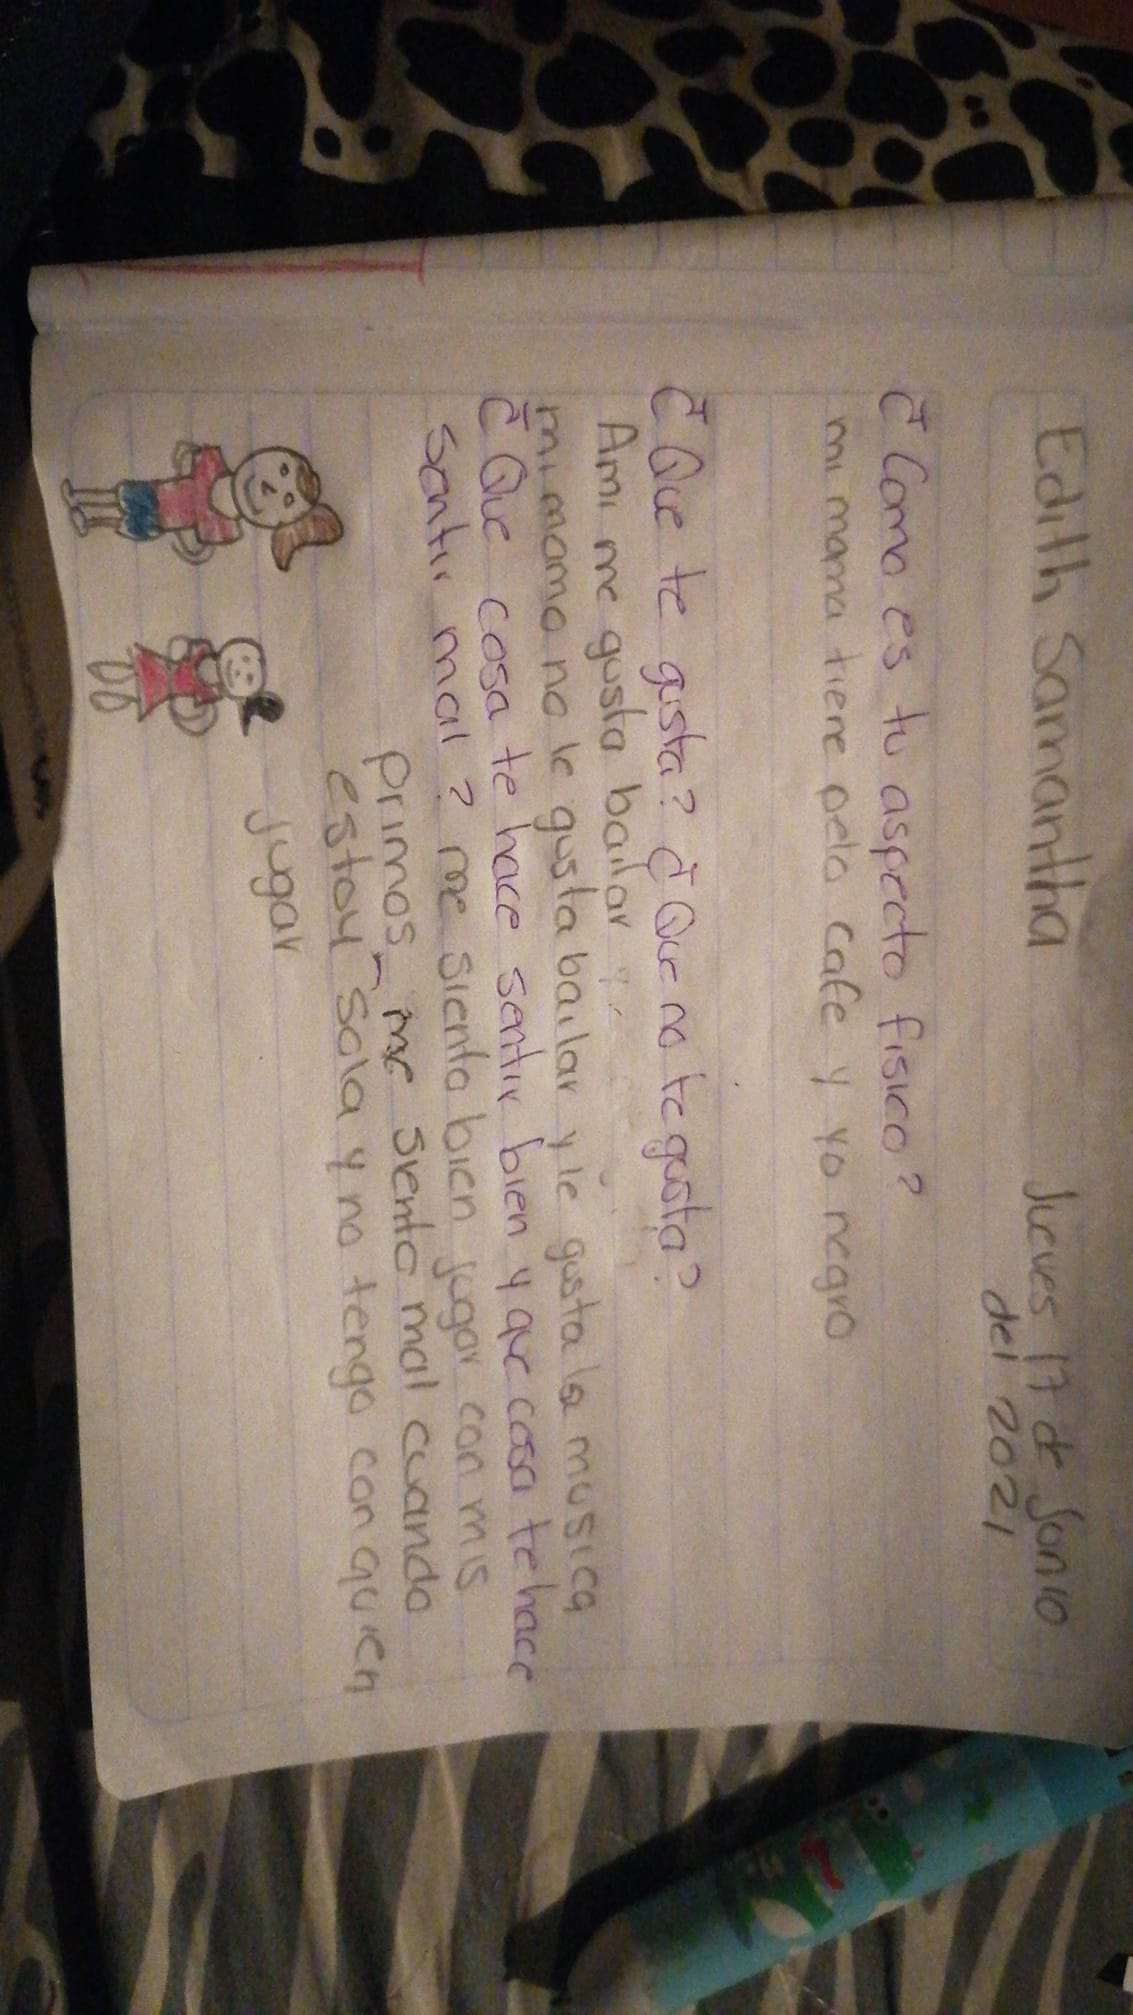 Edith Samantha Jueves 17 de Jonio
del 2021
¿Como es tu aspecto fisico?
mi mama tiene pelo cafe y yo negro
¿Que te gusta? ¿Que no te gusta?
Ami me gusta bailar y
mi mama no le gusta bailar y le gusta la musica
¿Que cosa te hace sentir bien y que cosa te hace
sentir mal? me siento bien jugar con mis
primos, me siento mal cuando
estoy sola y no tengo con quien
jugar